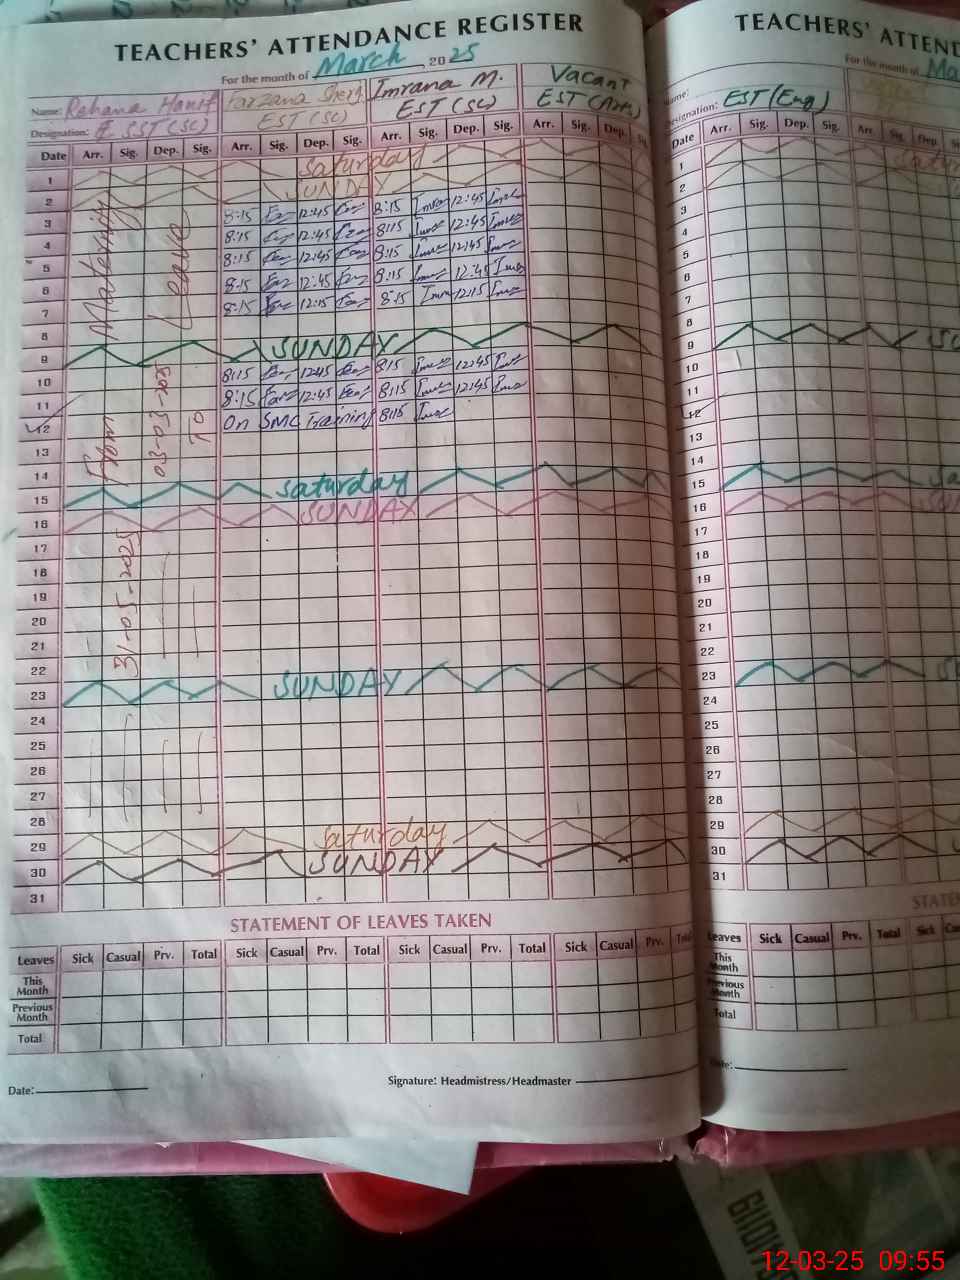 TEACHERS' ATTENDANCE REGISTER
For the month of March, 2025
Name: Rehana Hanif Farzana Imrana M. Vacant
Designation: SST (SC) EST (SC) EST (SC) EST (Arts)
Date Arr. Sig. Dep. Sig. Arr. Sig. Dep. Sig. Arr. Sig. Dep. Sig. Arr. Sig. Dep. Sig.
1 Saturday
2 SUNDAY
3 8:15 12:45 8:15 12:45
4 8:15 12:45 8:15 12:45
5 8:15 12:45 8:15 12:45
6 8:15 12:45 8:15 12:45
7 8:15 12:15 8:15 12:15
8
9 SUNDAY
10 8:15 12:45 8:15 12:45
11 8:15 12:45 8:15 12:45
12 On SMC Training 8:15
13
14
15 Saturday
16 SUNDAY
17
18
19
20
21
22
23 SUNDAY
24
25
26
27
28
29 Saturday
30 SUNDAY
31
Maternity Leave
From 03-03-2025 To
31-05-2025
STATEMENT OF LEAVES TAKEN
Leaves Sick Casual Prv. Total Sick Casual Prv. Total Sick Casual Prv. Total Sick Casual Prv. Total
This Month
Previous Month
Total
Date:
Signature: Headmistress/Headmaster
TEACHERS' ATTEND
For the month of Ma
Name:
Designation: EST (Eng)
Date Arr. Sig. Dep. Sig. Arr. Sig. Dep.
1
2
3
4
5
6
7
8
9
10
11
12
13
14
15
16
17
18
19
20
21
22
23
24
25
26
27
28
29
30
31
STATE
Leaves Sick Casual Prv. Total Sick
This Month
Previous Month
Total
Date:
12-03-25 09:55